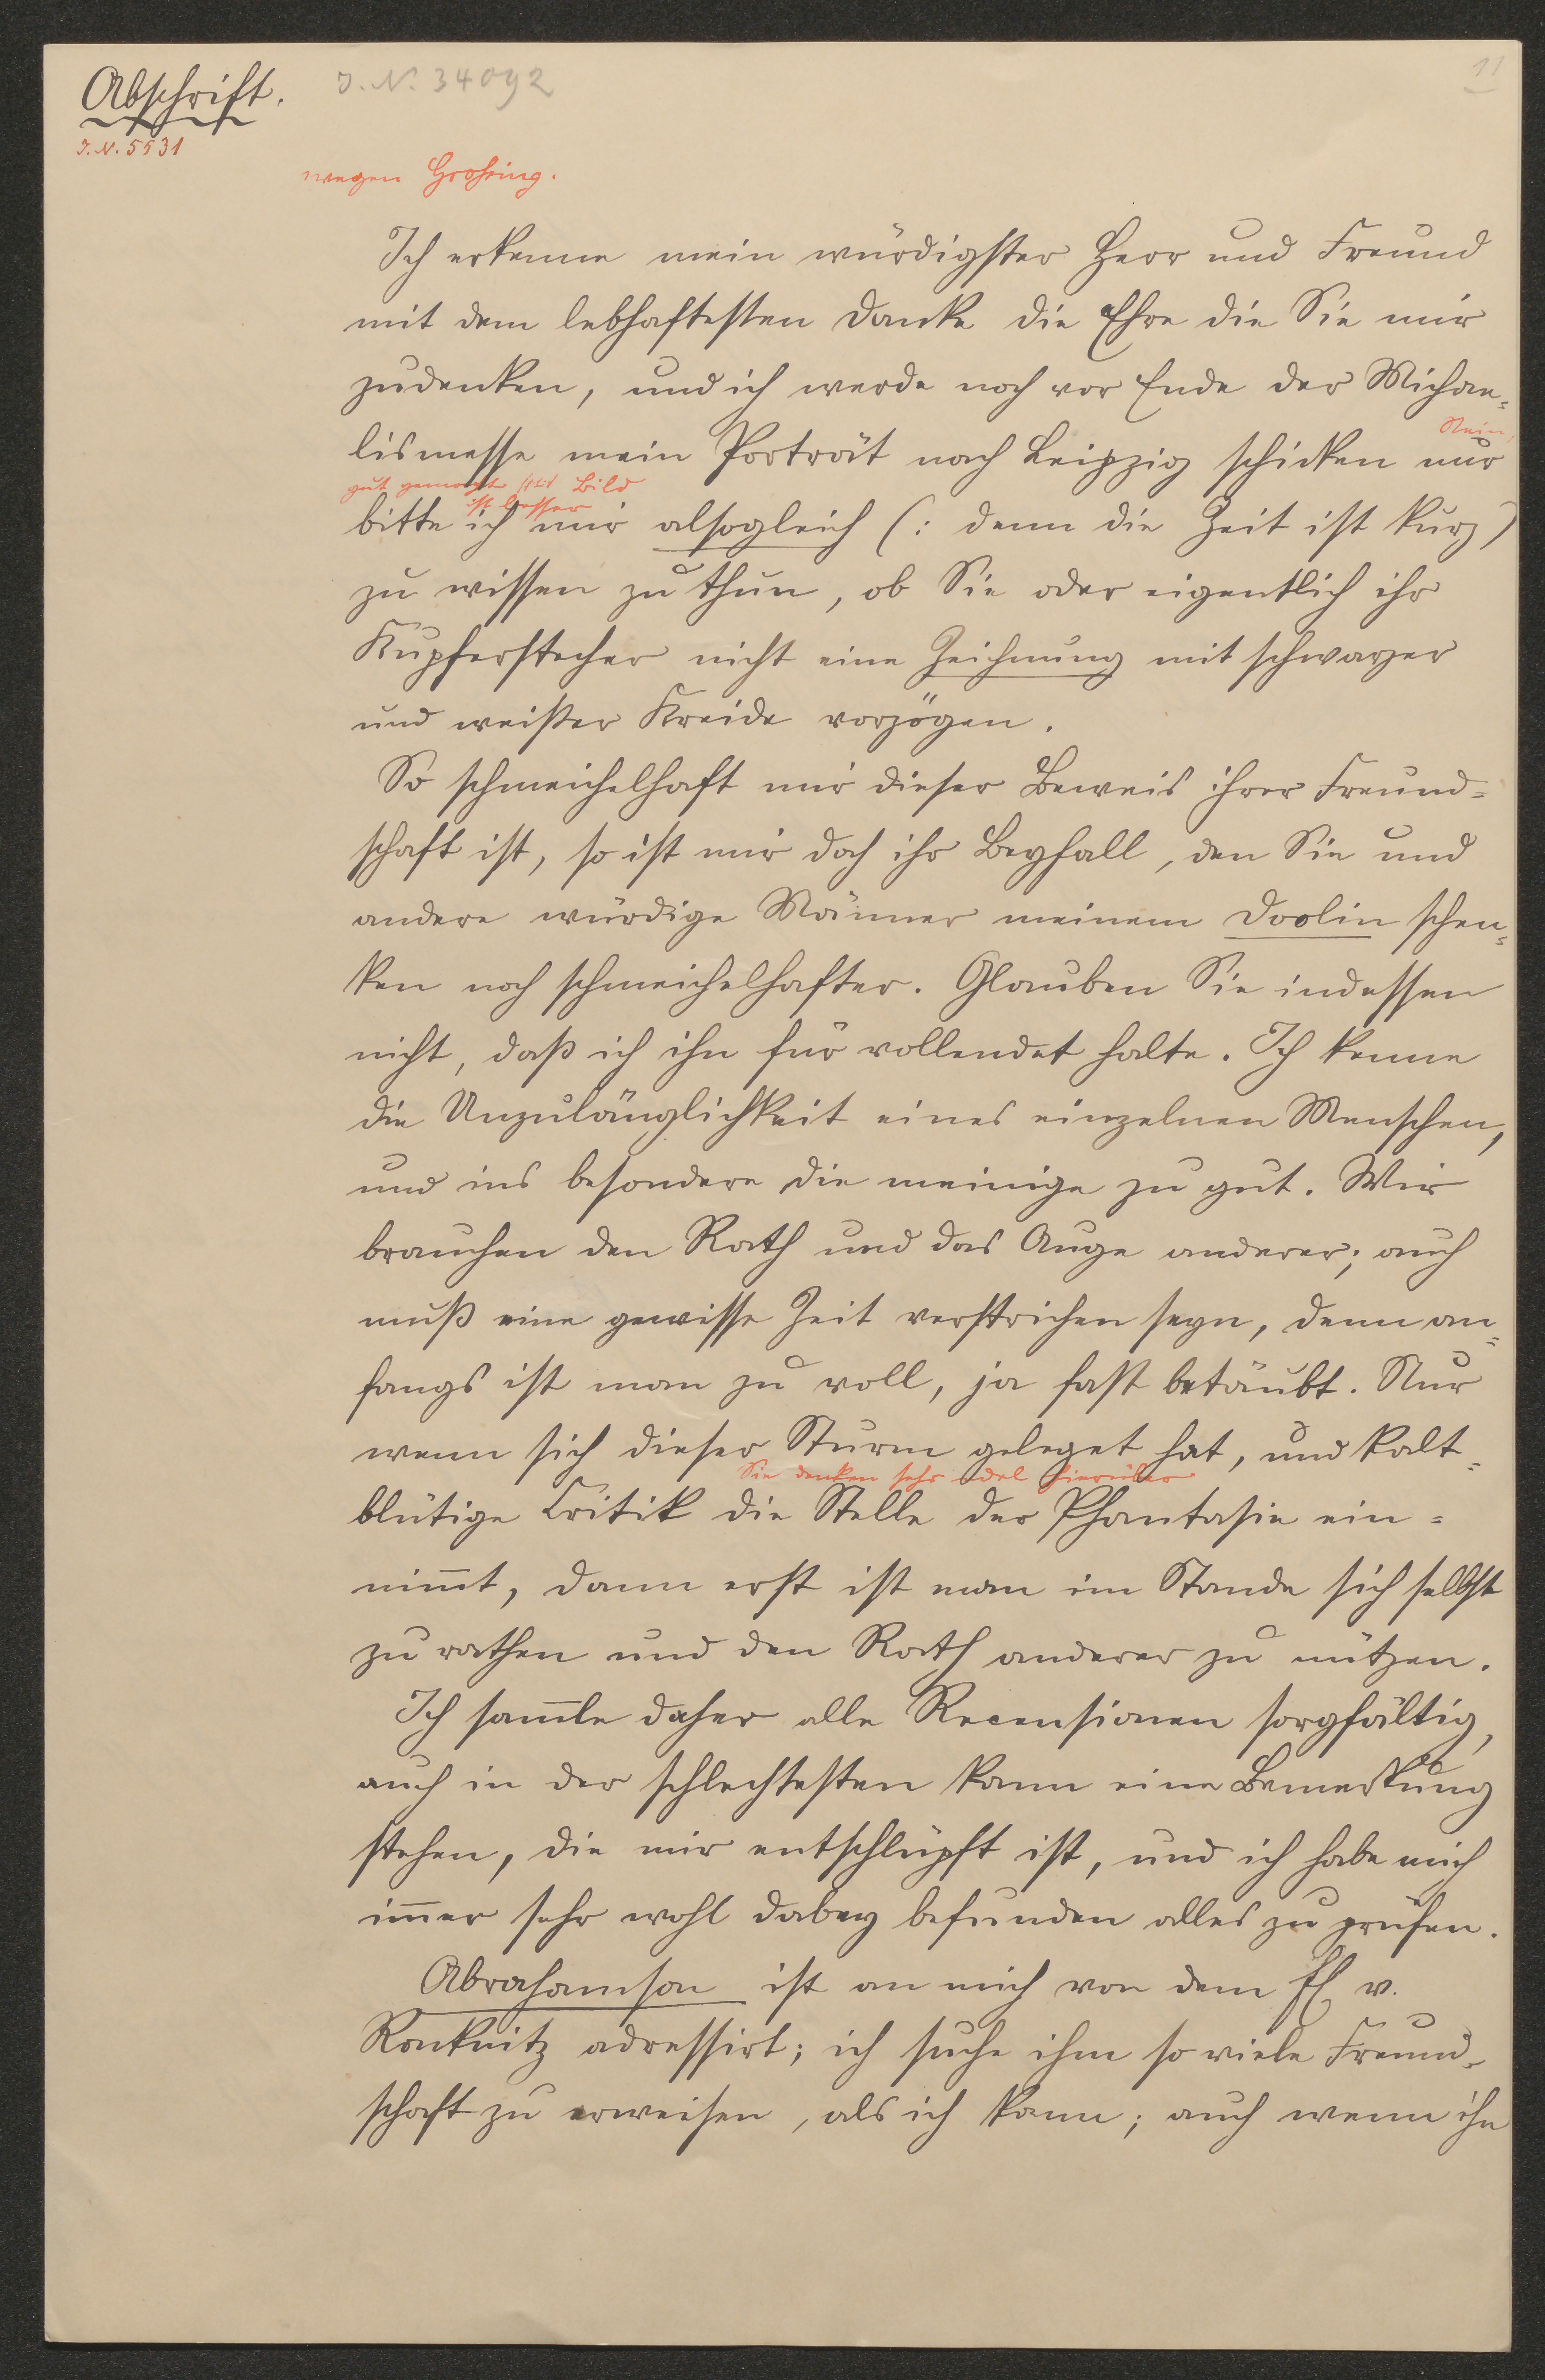 Abschrift.
J. N. 34092
11
J. N. 5531
wegen Grossing.
Ich erkenne mein würdigster Herr und Freund
mit dem lebhaftesten Danke die Ehre die Sie mir
zudenken, und ich werde noch vor Ende der Michae-
Nein,
lismesse mein Porträt nach Leipzig schicken nur
gut gemacht Bild
ist besser
bitte ich mir alsogleich (: denn die Zeit ist kurz)
zu wissen zu thun, ob Sie oder eigentlich ihr
Kupferstecher nicht eine Zeichnung mit schwarzer
und weißer Kreide vorzögen.
So schmeichelhaft mir dieser Beweis ihrer Freund=
schaft ist, so ist mir doch ihr Beyfall, den Sie und
andere würdige Männer meinem Doolin schen=
ken noch schmeichelhafter. Glauben Sie indessen
nicht, daß ich ihn für vollendet halte. Ich kenne
die Unzulänglichkeit eines einzelnen Menschen,
und ins besondere die meinige zu gut. Wir
brauchen den Rath und das Auge anderer; auch
muß eine gewisse Zeit verstrichen seyn, denn an=
fangs ist man zu voll, ja fast betäubt. Nur
wenn sich dieser Sturm geleget hat, und kalt=
Sie denken sehr edel hierüber
blütige Critik die Stelle der Phantasie ein=
nim̄t, dann erst ist man im Stande sich selbst
zu rathen und den Rath anderer zu nützen.
Ich sam̄le daher alle Recensionen sorgfältig,
auch in der schlechtesten kann eine Bemerkung
stehen, die mir entschlüpft ist, und ich habe mich
im̄er sehr wohl dabey befunden alles zu prüfen.
Abrahamson ist an mich von dem H v.
Racknitz adressirt; ich suche ihm so viele Freund-
schaft zu erweisen, als ich kann; auch wenn ihn